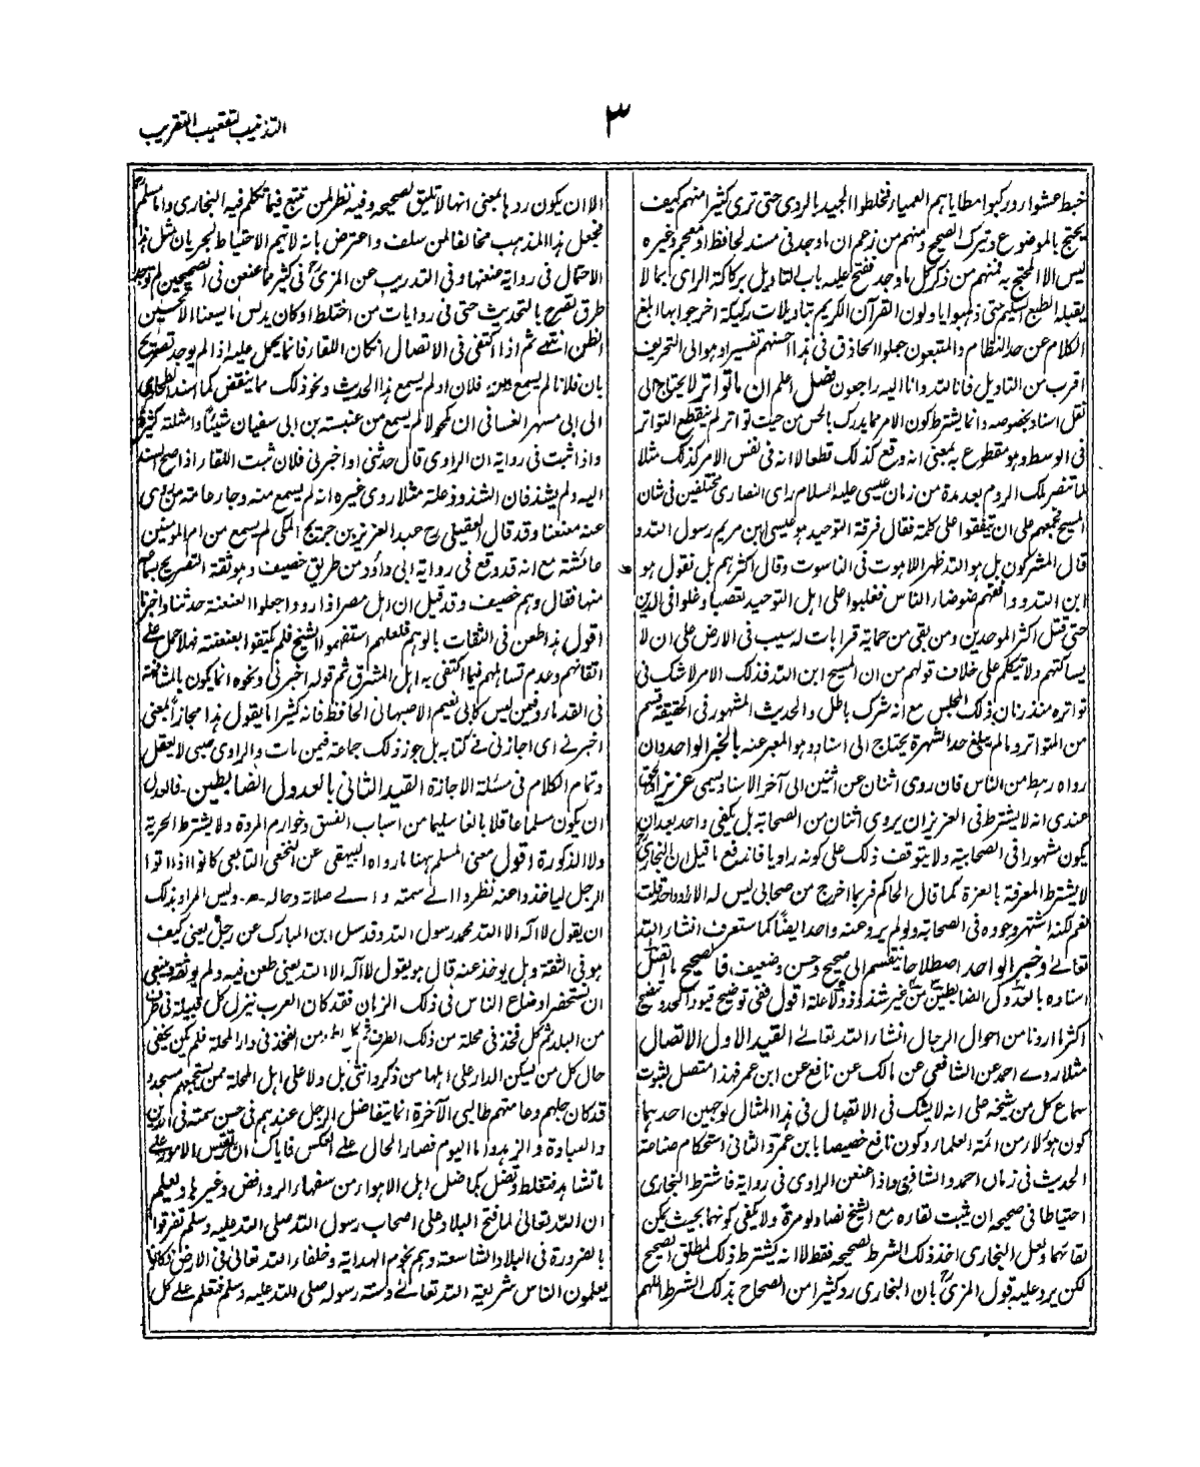 التذنيب لتعقيب التقريب
٣
خبط عشوار وركبوا مطايا هم العمياء فخلطوا الجيد بالردى حتى ترى كثيرا منهم كيف
يحتج بالموضوع ويترك الصحيح ومنهم من زعم ان ما وجد فى مسند لحافظ او معجم وغيره
ليس الا المحتج به فمنهم من ذكر كل ما وجد ففتح عليه باب التاويل بركاكة الراى بما لا
يقبله الطبع السليم حتى ذهبوا يا ولون القرآن الكريم بتاويلات ركيكة اخرجوا بها ابلغ
الكلام عن حد النظام والمتبعون جعلوا الحاذق فى هذا احسنهم تفسيرا وهو الى التحريف
اقرب من التاويل فانا لله وانا اليه راجعون فصل اعلم ان ما تواتر لا يحتاج الى
نقل اسناد بخصوصه وانما يشترط كون الامر مما يدرك بالحس من حيث تواتر لم ينقطع التواتر
فى الوسط وهو مقطوع به بمعنى انه وقع كذلك قطعا لا انه فى نفس الامر كذلك مثلا
لما تنصر ملك الروم بعد مدة من زمان عيسى عليه السلام راى النصارى مختلفين فى شان
المسيح فجمعهم على ان يتفقوا على كلمة فقال فرقة التوحيد هو عيسى ابن مريم رسول الله و
قال المشركون بل هو الله ظهر اللاهوت فى الناسوت وقال اكثرهم بل نقول هو
ابن الله ووافقهم ضوضار الناس فغلبوا على اهل التوحيد تعصبا وغلوا فى الدين
حتى قتل اكثر الموحدين ومن بقى من حماية قرابات له سيب فى الارض على ان لا
يساكنهم ولا يتكلم على خلاف قولهم من ان المسيح ابن الله فذلك الامر لا شك فى
تواتره منذ زمان ذلك المجلس مع انه شرك باطل والحديث المشهور فى الحقيقة قسم
من المتواتر وما لم يبلغ حد الشهرة يحتاج الى اسناد وهو المعبر عنه بالخبر الواحد وان
رواه رهط من الناس فان روى اثنان عن اثنين الى آخر الاسناد يسمى عزيزا والحق
عندى انه لا يشترط فى العزيز ان يروى اثنان من الصحابة بل يكفى واحد بعد ان
يكون مشهورا فى الصحابية ولا يتوقف ذلك على كونه راويا فاندفع ما قيل ان البخارى
لا يشترط المعرفة بالعزة كما قال الحاكم فربما اخرج من صحابى ليس له الا راو واحد قلت
نعم لكنه اشتهر وجوده فى الصحابة ولو لم يرو عنه واحد ايضا كما ستعرف انشار الله
تعالى وخبر الواحد اصطلاحا ينقسم الى صحيح وحسن وضعيف، فالصحيح ما اتصل
اسناده بالعدول الضابطين من غير شذوذ ولا علة اقول ففى توضيح قيود الحد وتضيح
اكثر ما اردنا من احوال الرجال انشار الله تعالى القيد الاول الاتصال
مثلا روى احمد عن الشافعى عن مالك عن نافع عن ابن عمر فهذا متصل لثبوت
سماع كل من شيخه على انه لا يشك فى الاتصال فى هذا المثال لوجهين احدهما
كون هؤلار من ائمة العلمار وكون نافع خصيصا بابن عمر والثانى استحكام صناعة
الحديث فى زمان احمد والشافعى واذا عنعن الراوى فى رواية فاشترط البخارى
احتياطا فى صحيحه ان يثبت لقاره مع الشيخ نصا ولو مرة ولا يكفى كونهما بحيث يمكن
لقائهما ولعل البخارى اخذ ذلك الشرط لصحيحه فقط لا انه يشترط ذلك لمطلق الصحيح
لكن يرد عليه قول المزى بان البخارى رد كثيرا من الصحاح بذلك الشرط اللهم
الا ان يكون ردها بمعنى انها لا تليق لصحيحه وفيه نظر لمن تتبع فيما تكلم فيه البخارى واما مسلم
فجعل هذا المذهب مخالفا لمن سلف واعترض بانه لا يتم الاحتياط لجريان مثل هذا
الاحتمال فى رواية عنعنها وفى التدريب عن المزى فى كثير مما عنعن فى الصحيحين لم يوجد
طرق تصرح بالتحديث حتى فى روايات من اختلط او كان يدلس ما يسعنا الا تحسين
الظن انتهى ثم اذا اكتفى فى الاتصال امكان اللقار فانما يحمل عليه اذا لم يوجد تصريح
بان فلانا لم يسمع من فلان او لم يسمع هذا الحديث ونحو ذلك مما ينقض كما اسند الطحاوى
الى ابى مسهر الغسانى ان مكحولا لم يسمع من عنبسة بن ابى سفيان شيئا وامثلته كثيرة
واذا ثبت فى رواية ان الراوى قال حدثنى او اخبرنى فلان ثبت اللقار اذا صح السند
اليه ولم يشذ فان الشذوذ علة مثلا روى غيره انه لم يسمع منه وجار عامة من روى
عنه معنعنا وقد قال العقيلى رح عبد العزيز بن جريج المكى لم يسمع من ام المومنين
عائشة مع انه قد وقع فى رواية ابى داؤد من طريق خصيف وهو ثقة التصريح بسماعه
منها فقال وهم خصيف وقد قيل ان اهل مصر اذا رووا جعلوا العنعنة حدثنا واخبرنا
اقول هذا طعن فى الثقات بالوهم فلعلهم استفهموا الشيخ فلم يكتفوا بعنعنته فهلا حمل على
اتقانهم وعدم تساهلهم فيما اكتفى به اهل المشرق ثم قوله اخبرنى ونحوه انما يكون بالمشافهة
فى القدمار فمن ليس كابى نعيم الاصبهانى الحافظ فانه كثيرا ما يقول هذا مجازا بمعنى
اخبرنى اى اجازنى فى كتابه بل جوز ذلك جماعة فيمن مات والراوى صبى لا يعقل
وتمام الكلام فى مسئلة الاجازة القيد الثانى بالعدول الضابطين - فالعدل
ان يكون مسلما عاقلا بالغا سليما من اسباب الفسق وخوارم المردة ولا يشترط الحرية
ولا الذكورة اقول معنى المسلم ههنا ما رواه البيهقى عن النخعى التابعى كانوا اذا اتوا
الرجل لياخذوا عنه نظروا الى سمته و الى صلاته وحاله - ه - وليس المراد بذلك
ان يقول لا اله الا الله محمد رسول الله وقد سئل ابن المبارك عن رجل يعنى كيف
هو فى الثقة وهل يوخذ عنه قال هو يقول لا اله الا الله يعنى طعن فيه ولم يوثقه وينبغى
ان تستحضر اوضاع الناس فى ذلك الزمان فقد كان العرب ينزل كل قبيلة فى طرف
من البلد ثم كل فخذ فى محلة من ذلك الطرف ثم كل من الفخذ فى دار المحلة فلم يكن يخفى
حال كل من يسكن الدار على اهلها من ذكر وانثى بل ولا على اهل المحلة ممن يجمعهم مسجد و
قد كان جلهم وعامتهم طالبى الآخرة انما يتفاضل الرجل عندهم فى حسن سمته فى الدين
والعبادة والزهد واما اليوم فصار الحال على العكس فاياك ان تقيس الامور على
ما تشاهد فتغلط وتضل كما ضل اهل الاهوار من سفهار الروافض وغيرها وليعلم
ان الله تعالى لما فتح البلاد على اصحاب رسول الله صلى الله عليه وسلم تفرقوا
بالضرورة فى البلاد الشاسعة وهم نجوم الهداية وخلفار الله تعالى فى الارض فكانوا
يعلمون الناس شريعة الله تعالى وسنة رسوله صلى الله عليه وسلم فتعلم على كل